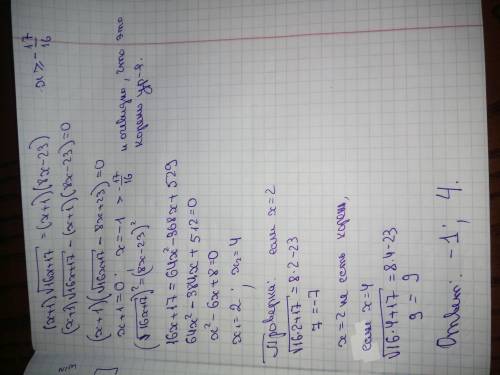 (x+1)√16x+17 = (x+1)(8x-23)      x ≥ -17/16
(x+1)√16x+17 - (x+1)(8x-23)=0
(x+1)(√16x+17 - 8x+23)=0
x+1=0; x=-1 > -17/16 и очевидно, что это
корень ур-я.
(√16x+17)²=(8x-23)²
16x+17=64x²-368x+529
64x²-384x+512=0
x²-6x+8=0
x₁=2; x₂=4
Проверка: если x=2
√16·2+17=8·2-23
7=-7
x=2 не есть корень,
если x=4
√16·4+17=8·4-23
9=9
Ответ: -1; 4.